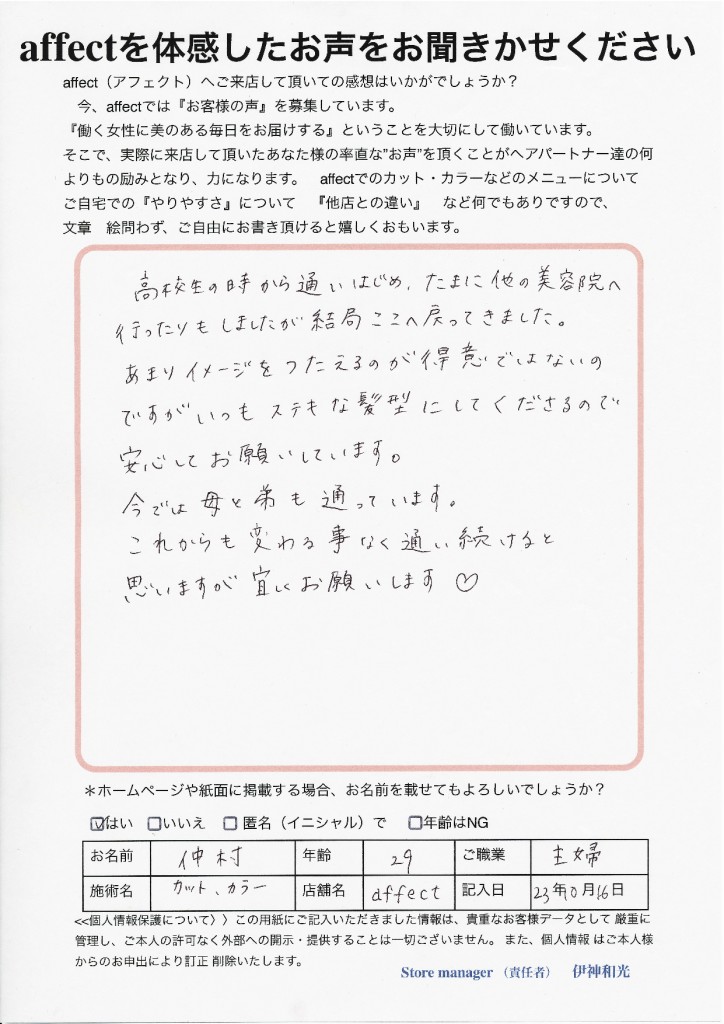 affectを体感したお声をお聞きかせください
affect（アフェクト）へご来店して頂いての感想はいかがでしょうか？
今、affectでは『お客様の声』を募集しています。
『働く女性に美のある毎日をお届けする』ということを大切にして働いています。
そこで、実際に来店して頂いたあなた様の率直な"お声"を頂くことがヘアパートナー達の何
よりもの励みとなり、力になります。 affectでのカット・カラーなどのメニューについて
ご自宅での『やりやすさ』について 『他店との違い』 など何でもありですので、
文章 絵問わず、ご自由にお書き頂けると嬉しくおもいます。
高校生の時から通いはじめ、たまに他の美容院へ
行ったりもしましたが結局ここへ戻ってきました。
あまりイメージをつたえるのが得意ではないの
ですがいつもステキな髪型にしてくださるので
安心してお願いしています。
今では母と弟も通っています。
これからも変わる事なく通い続けると
思いますが宜しくお願いします♡
＊ホームページや紙面に掲載する場合、お名前を載せてもよろしいでしょうか？
☑はい □いいえ □ 匿名（イニシャル）で □年齢はNG
お名前 仲村 年齢 29 ご職業 主婦
施術名 カット、カラー 店舗名 affect 記入日 23年10月16日
<<個人情報保護について〉〉この用紙にご記入いただきました情報は、貴重なお客様データとして 厳重に
管理し、ご本人の許可なく外部への開示・提供することは一切ございません。また、個人情報 はご本人様
からのお申出により訂正 削除いたします。
Store manager （責任者） 伊神和光